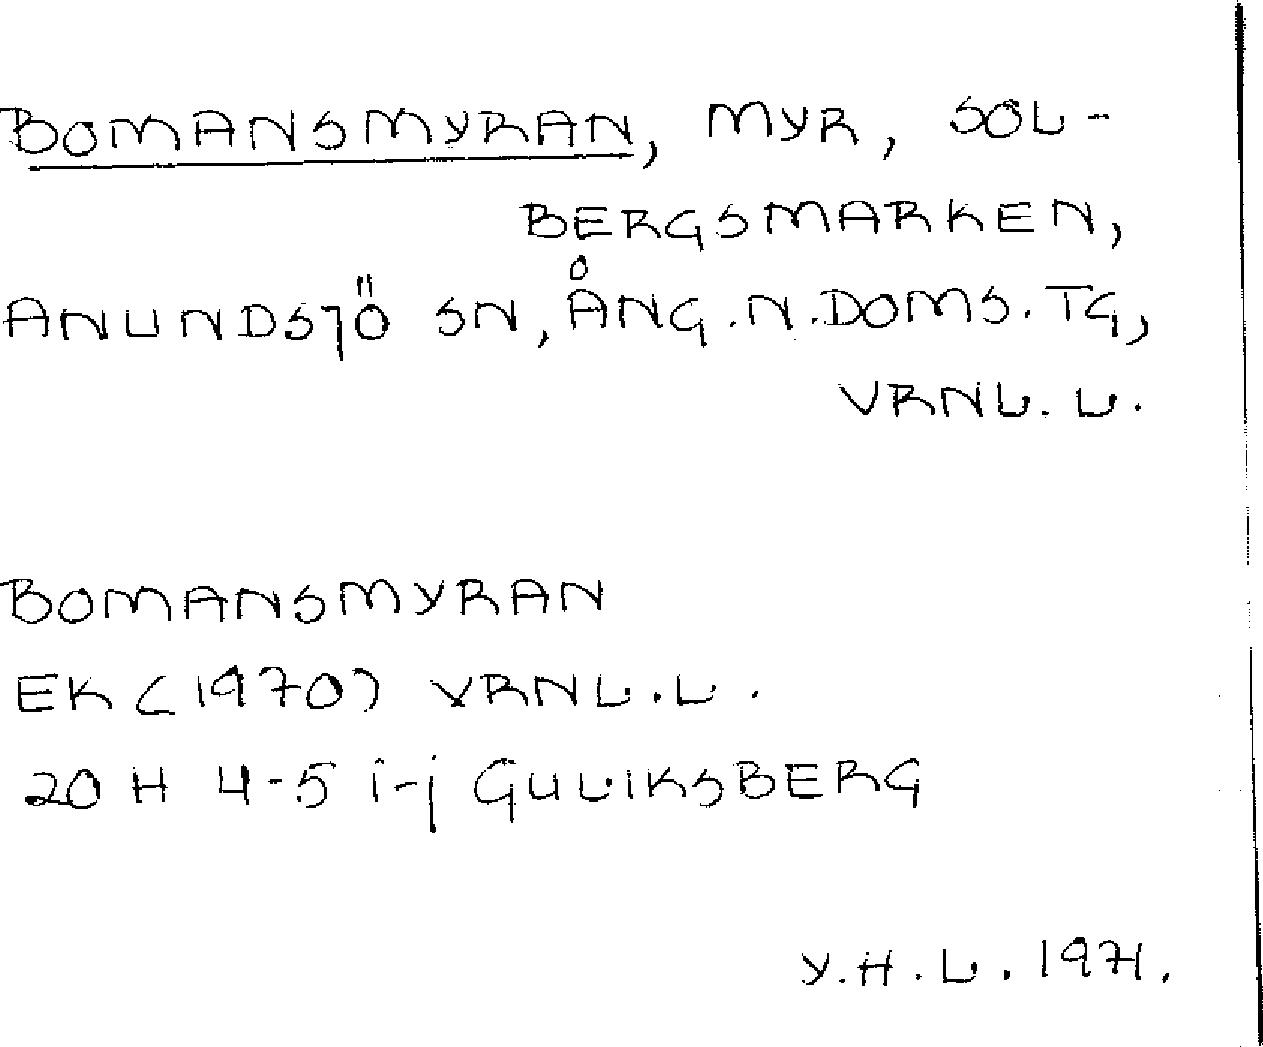 BOMANSMYRAN, MYR, SOL-
BERGSMARKEN,
ANUNDSJÖ SN, ÅNG.N.DOMS.TG,
VRNL.L.
BOMANSMYRAN
EK (1970) VRNL.L.
20 H 4-5 i-j GULIKSBERG
Y.H.L. 1971.